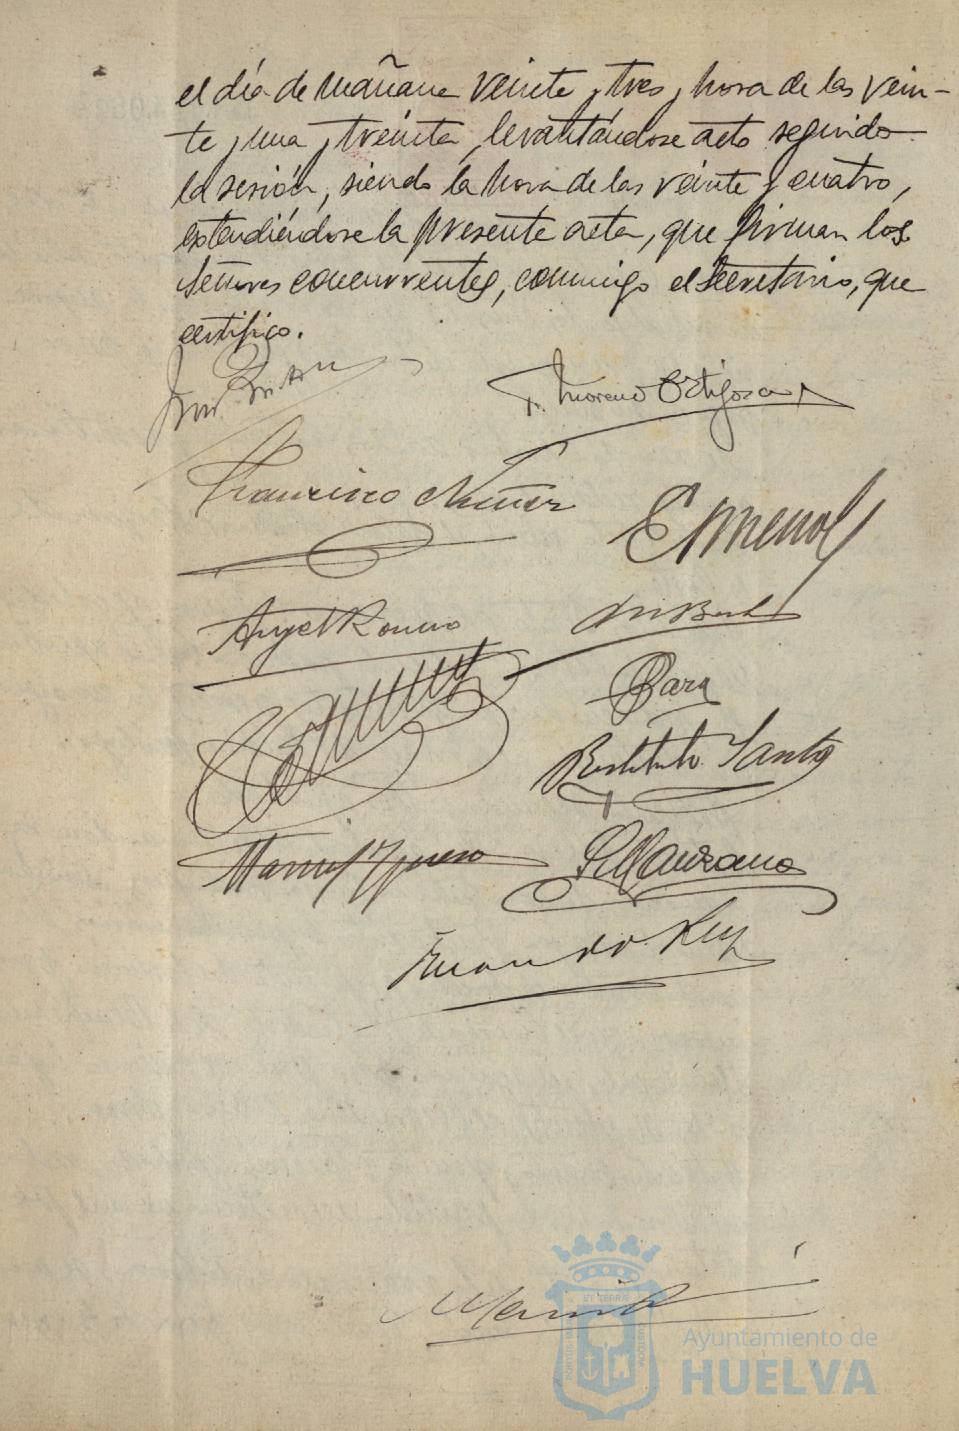 el día de mañana veinte y tres y hora de las vein-
te y una y treinta, levantándose acto seguido
la sesión, siendo la hora de las veinte y cuatro,
extendiéndose la presente acta, que firman los
señores concurrentes, conmigo el Secretario, que
certifico.
F. Moreno Ortigosa
Francisco Núñez
Angel Romero
Restituto Santos
Manuel
Manzano
Fernando Ruiz
Ayuntamiento de
HUELVA